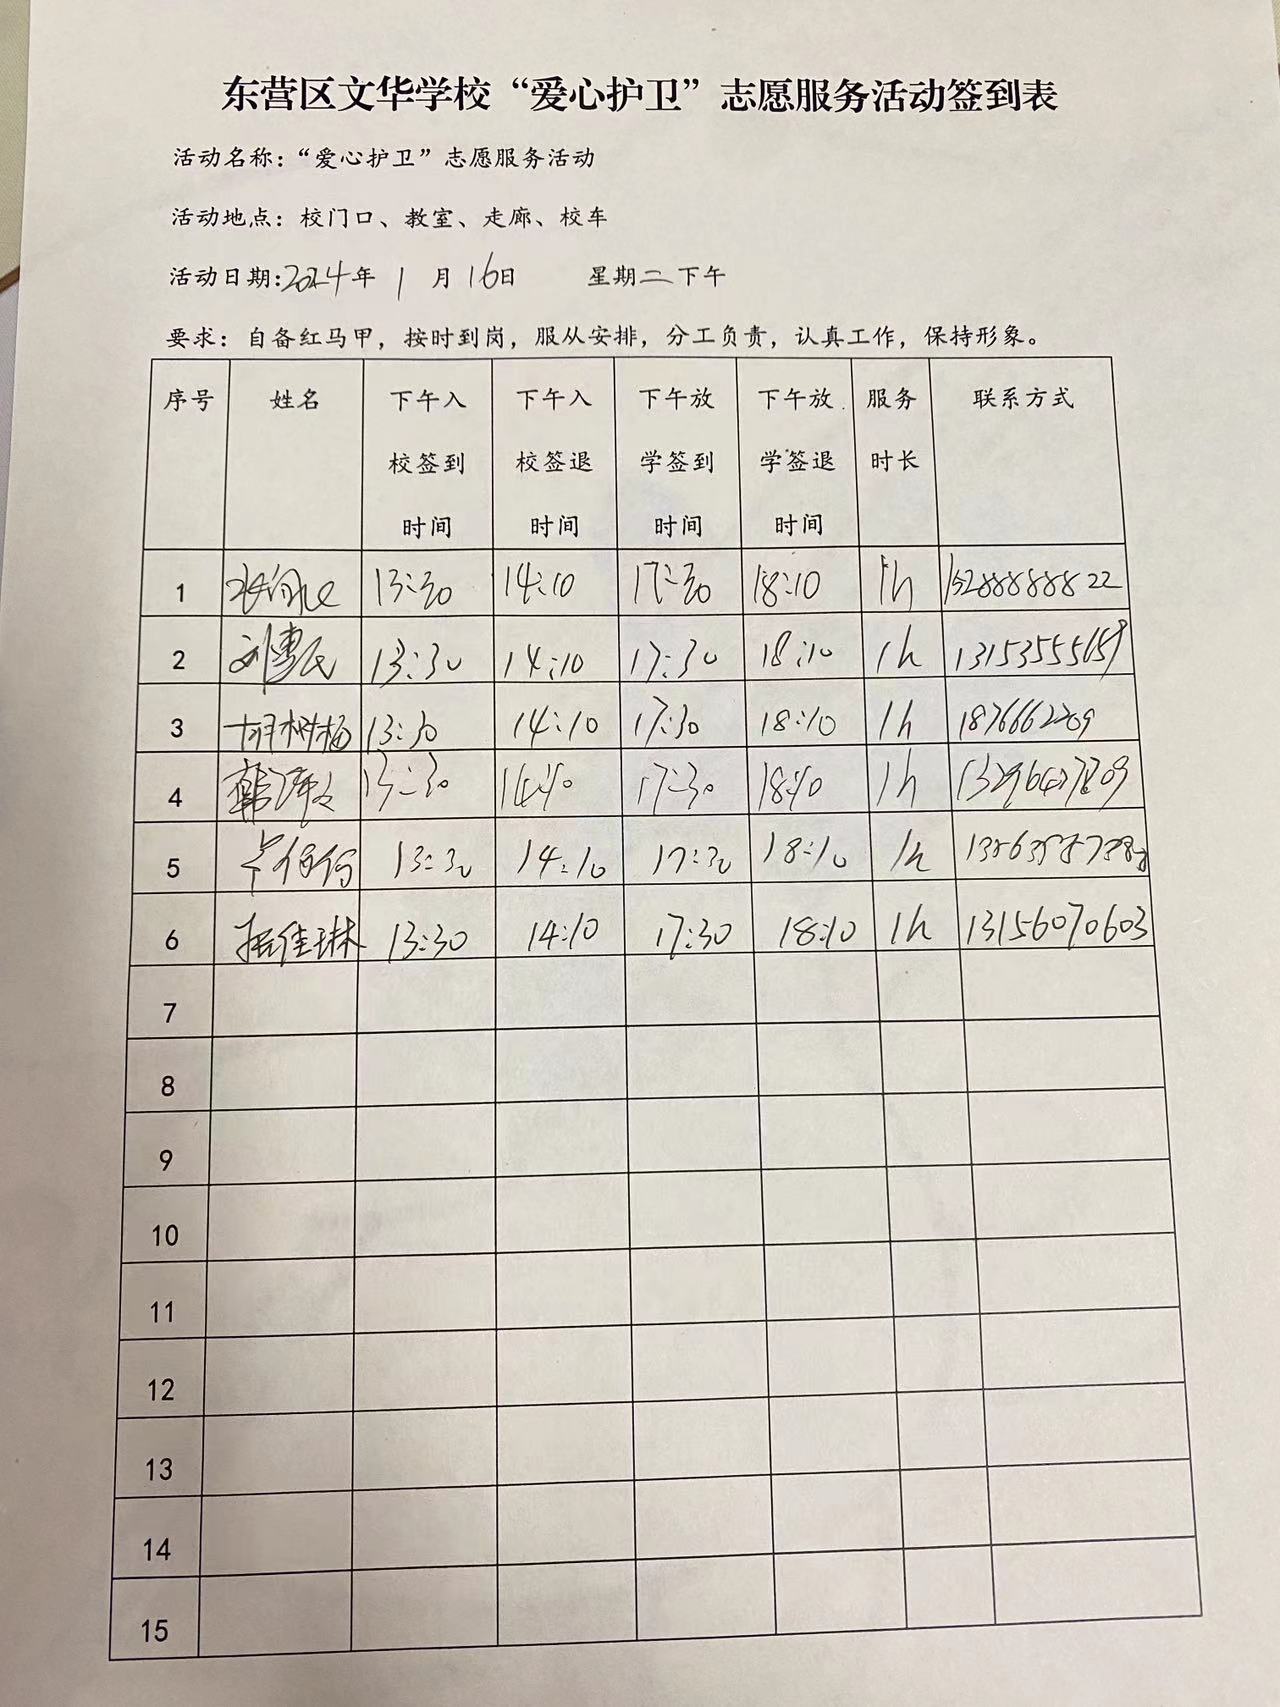 东营区文华学校“爱心护卫”志愿服务活动签到表
活动名称：“爱心护卫”志愿服务活动
活动地点：校门口、教室、走廊、校车
活动日期:2024年 1 月 16日 星期二下午
要求：自备红马甲，按时到岗，服从安排，分工负责，认真工作，保持形象。
序号 姓名 下午入校签到时间 下午入校签退时间 下午放学签到时间 下午放学签退时间 服务时长 联系方式
1 13:30 14:10 17:30 18:10 1h 15288888822
2 刘惠民 13:30 14:10 17:30 18:10 1h
3 胡树杨 13:30 14:10 17:30 18:10 1h
4 13:30 14:10 17:30 18:10 1h
5 13:30 14:10 17:30 18:10 1h
6 佳琳 13:30 14:10 17:30 18:10 1h 13156070603
7
8
9
10
11
12
13
14
15